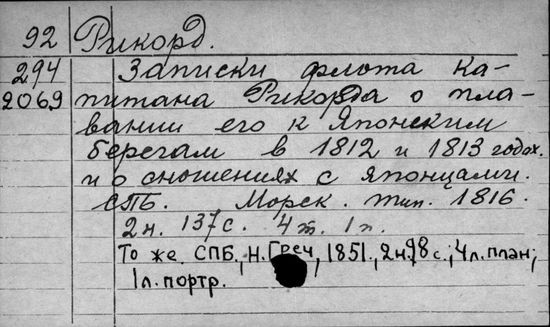 92 Рикорд.
294 Записки флота ка-
2069 питана Рикорда о пла-
вании его к Японским
берегам в 1812 и 1813 годах.
и о сношениях с японцами.
СПБ. Морск. тип. 1816.
2 н. 137 с. 4 т. 1 л.
То же. СПБ., Н. Греч, 1851., 2 н. 98 с.; 4 л. план;
1 л. портр.